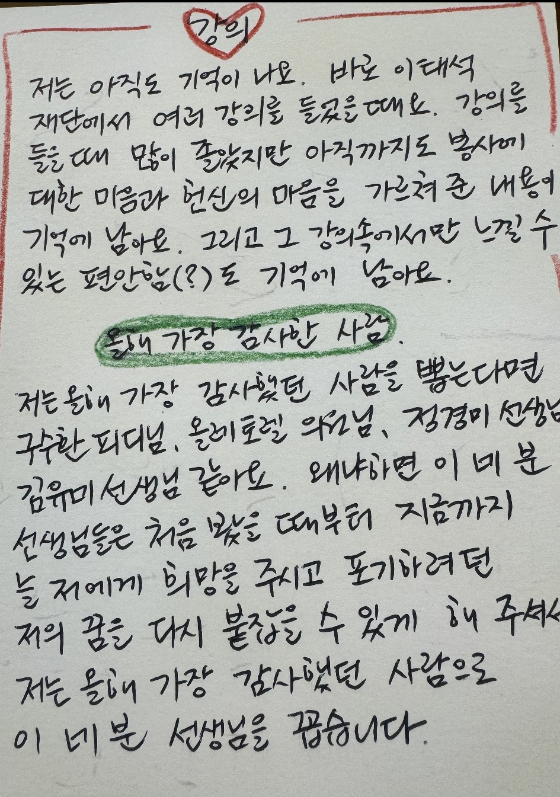 강의
저는 아직도 기억이 나요. 바로 이태석
재단에서 여러 강의를 들었을 때요. 강의를
들을 때 많이 졸았지만 아직까지도 봉사에
대한 마음과 헌신의 마음을 가르쳐 준 내용이
기억에 남아요. 그리고 그 강의속에서만 느낄 수
있는 편안함(?)도 기억에 남아요.
올해 가장 감사한 사람.
저는 올해 가장 감사했던 사람을 뽑는다면
구수환 피디님, 올리 토렐 의원님, 정경미 선생님
김유미 선생님 같아요. 왜냐하면 이 네 분
선생님들은 처음 봤을 때부터 지금까지
늘 저에게 희망을 주시고 포기하려던
저의 꿈을 다시 붙잡을 수 있게 해 주셔서
저는 올해 가장 감사했던 사람으로
이 네 분 선생님을 꼽습니다.